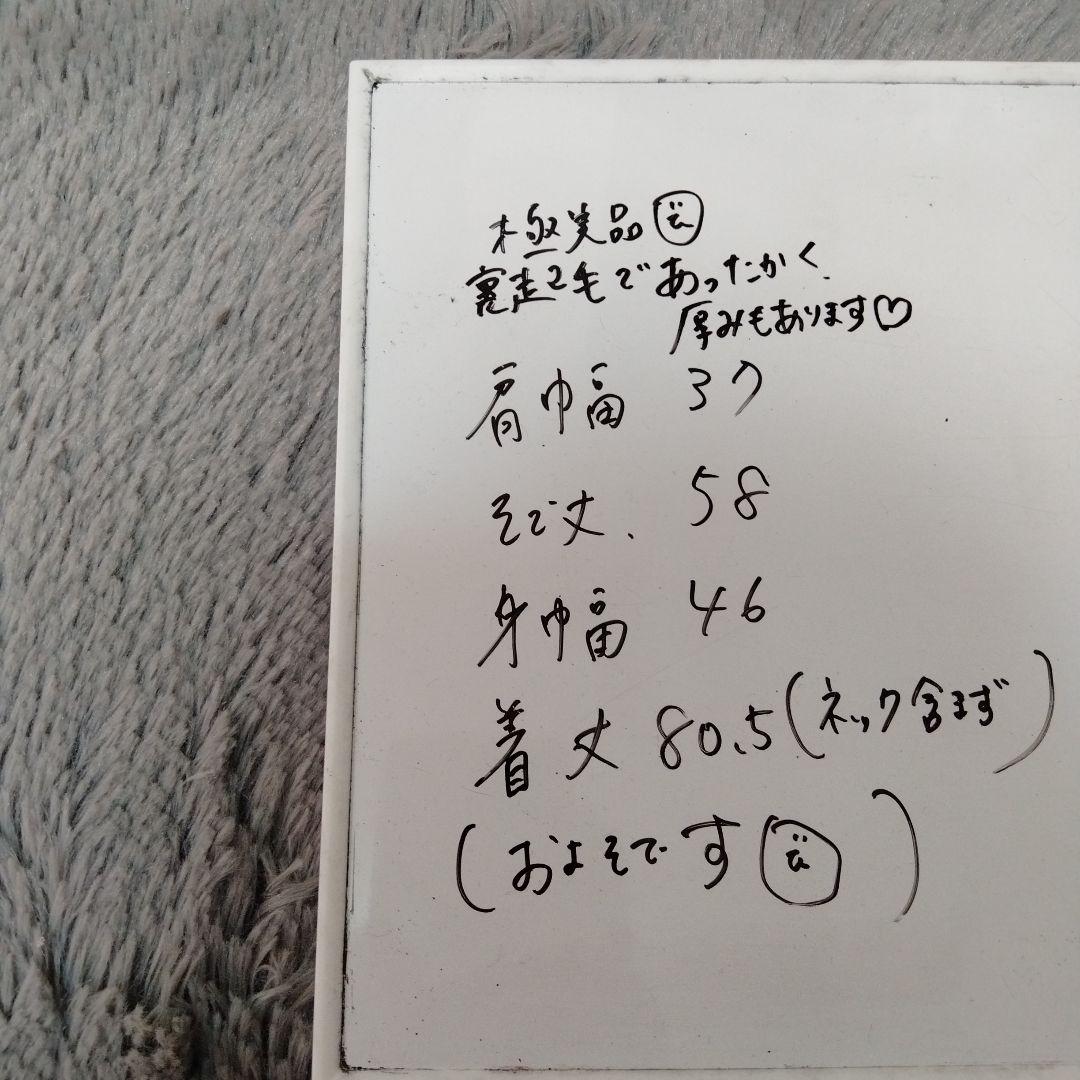 極美品
裏起毛であったかく
厚みもあります♡
肩巾幅 37
そで丈. 58
身巾幅 46
着丈 80.5(ネック含まず)
(およそです)